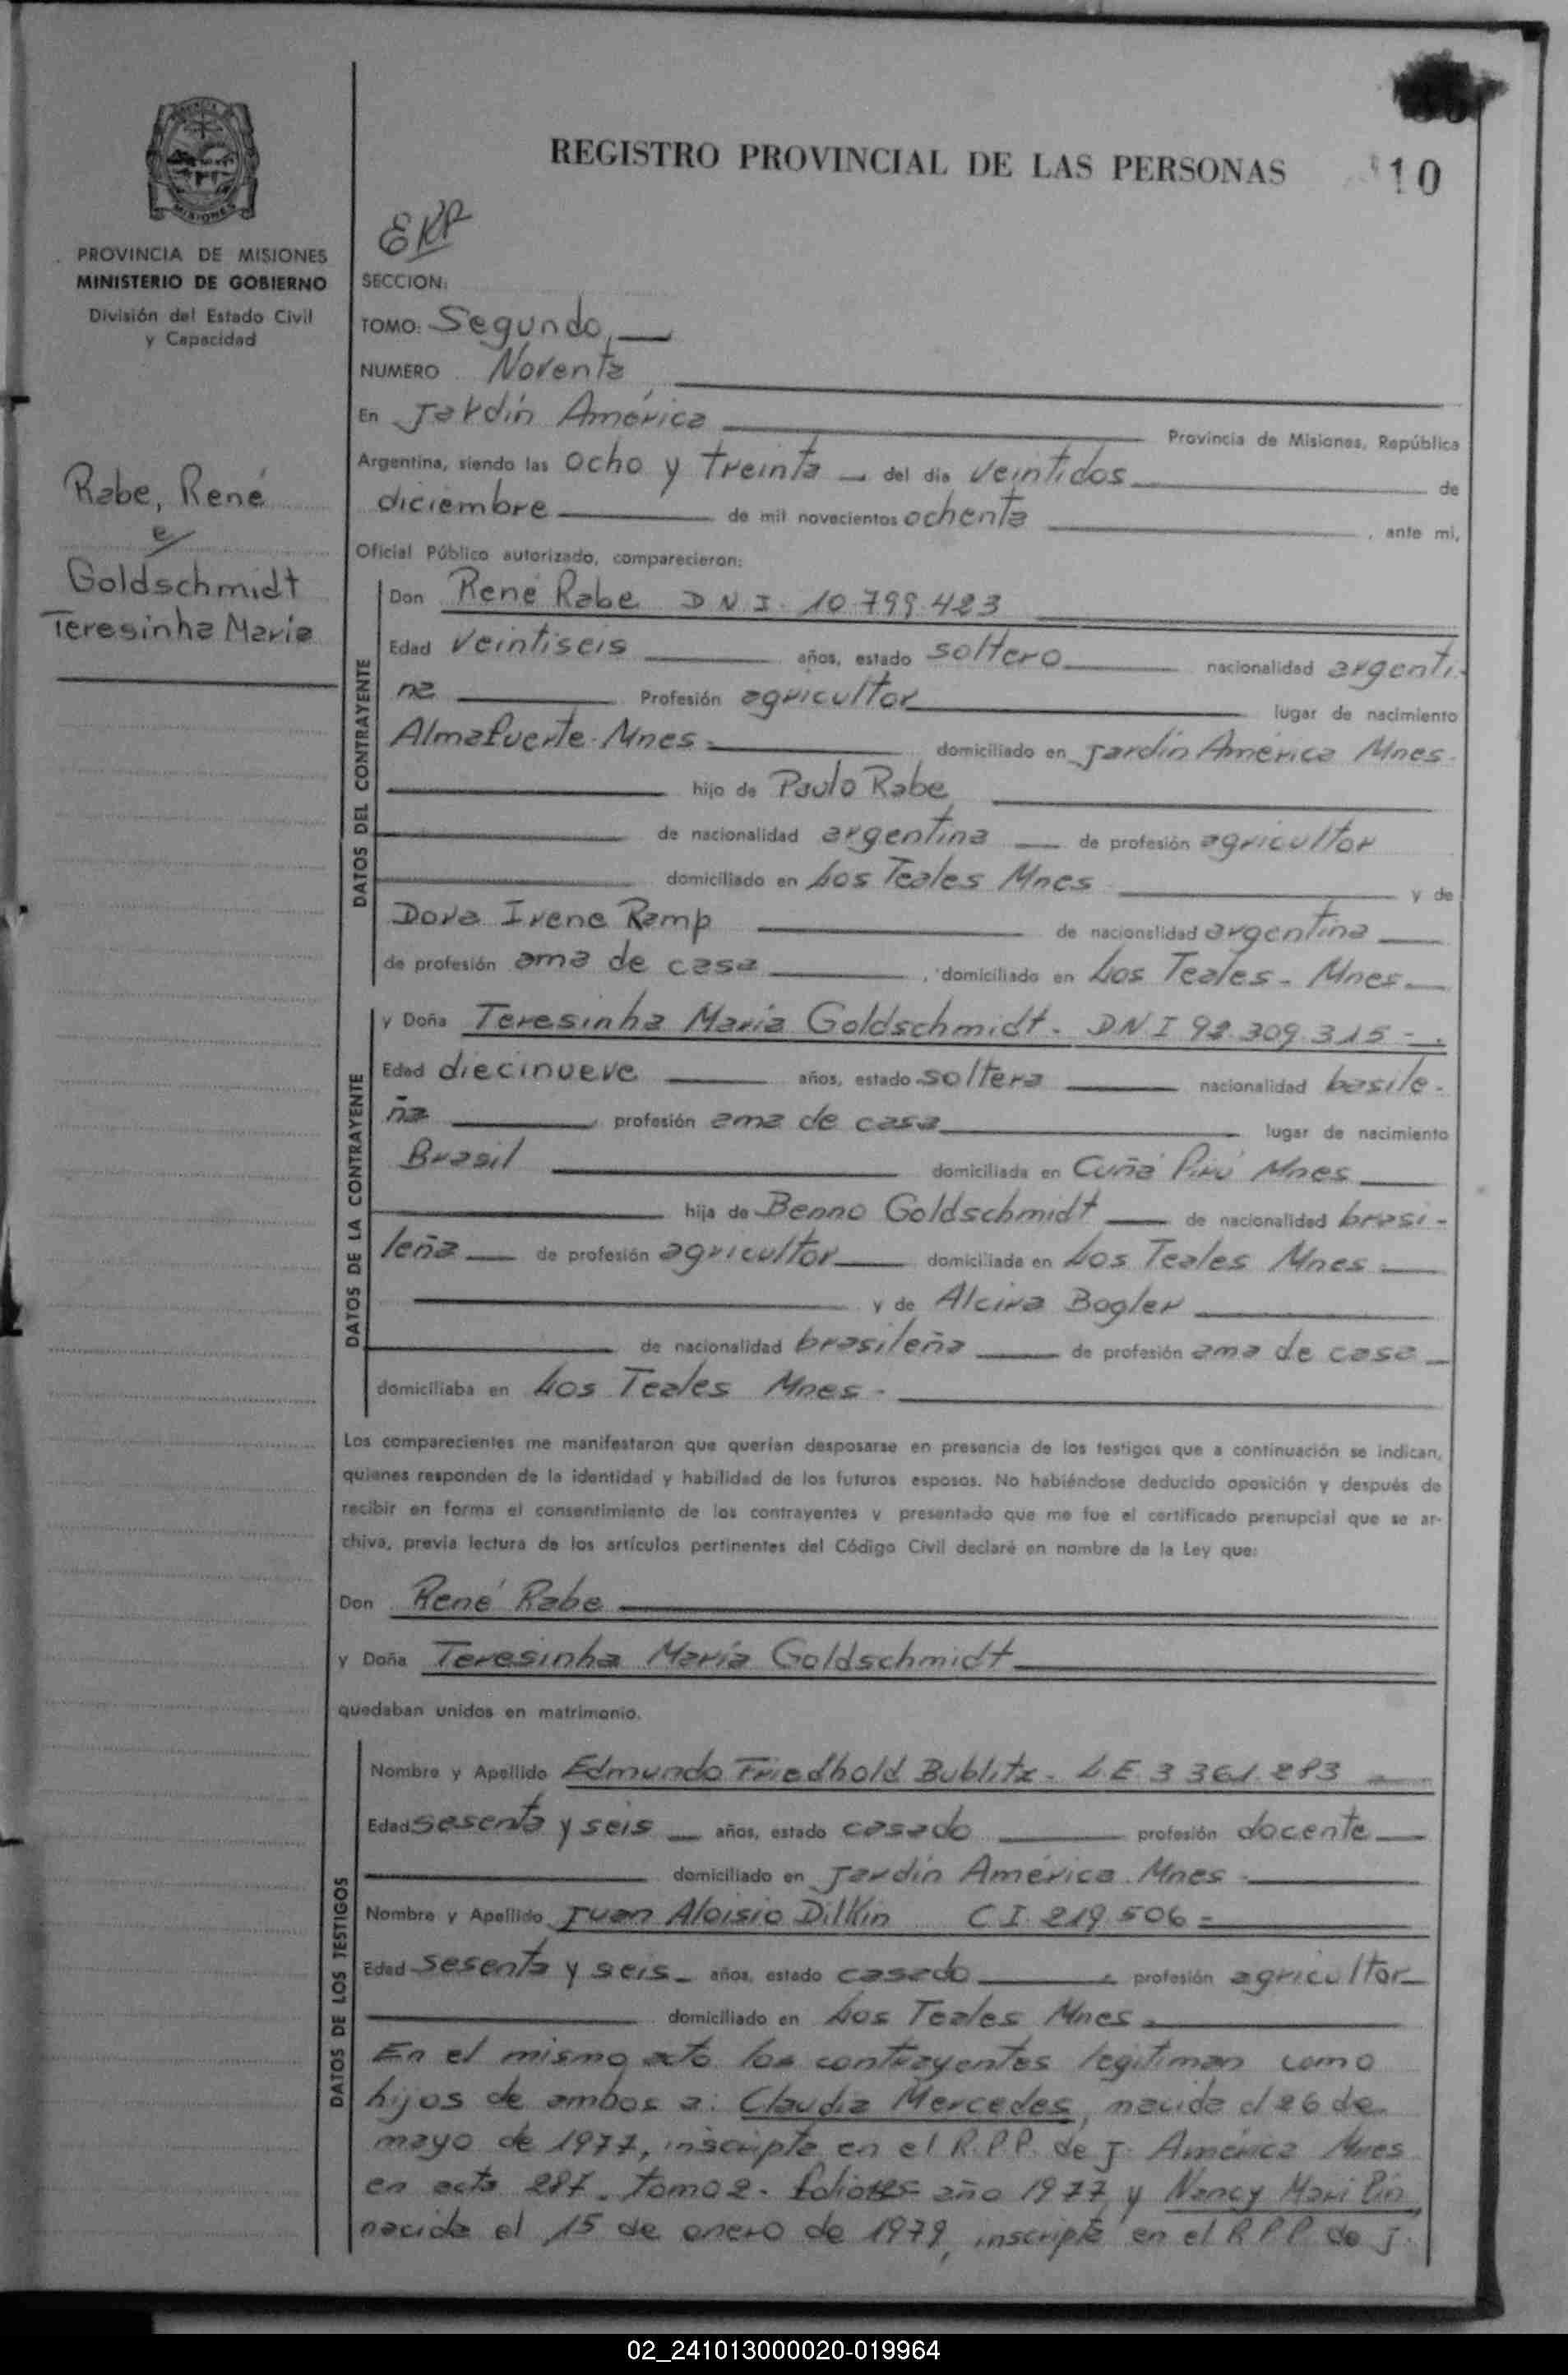 REGISTRO PROVINCIAL DE LAS PERSONAS
10
MISIONES
PROVINCIA DE MISIONES
MINISTERIO DE GOBIERNO
División del Estado Civil
y Capacidad
Rabe, René
e/
Goldschmidt
Teresinha María
SECCION:
TOMO: Segundo,
NUMERO Noventa
En Jardín América Provincia de Misiones, República
Argentina, siendo las ocho y treinta del dia veintidos de
diciembre de mil novecientos ochenta, ante mi,
Oficial Público autorizado, comparecieron:
DATOS DEL CONTRAYENTE
Don René Rabe DNI. 10.799.423
Edad veintiseis años, estado soltero nacionalidad argenti-
na Profesión agricultor lugar de nacimiento
Almafuerte-Mnes. domiciliado en Jardín América Mnes.
hijo de Paulo Rabe
de nacionalidad argentina de profesión agricultor
domiciliado en Los Teales Mnes y de
Dora Irene Ramp de nacionalidad argentina
de profesión ama de casa, domiciliado en Los Teales-Mnes.
DATOS DE LA CONTRAYENTE
y Doña Teresinha María Goldschmidt. DNI 92.309.315-.
Edad diecinueve años, estado soltera nacionalidad basile-
ña profesión ama de casa lugar de nacimiento
Brasil domiciliada en Cuñá Pirú Mnes
hija de Benno Goldschmidt de nacionalidad brasi-
leña de profesión agricultor domiciliada en Los Teales Mnes.
y de Alcira Bogler
de nacionalidad brasileña de profesión ama de casa
domiciliaba en Los Teales Mnes.
Los comparecientes me manifestaron que querían desposarse en presencia de los testigos que a continuación se indican,
quienes responden de la identidad y habilidad de los futuros esposos. No habiéndose deducido oposición y después de
recibir en forma el consentimiento de los contrayentes y presentado que me fue el certificado prenupcial que se ar-
chiva, previa lectura de los artículos pertinentes del Código Civil declaré en nombre de la Ley que:
Don René Rabe
y Doña Teresinha María Goldschmidt
quedaban unidos en matrimonio.
DATOS DE LOS TESTIGOS
Nombre y Apellido Edmundo Friedhold Bublitz- L.E. 3.361.283
Edad sesenta y seis años, estado casado profesión docente
domiciliado en Jardín América. Mnes.
Nombre y Apellido Juan Aloisio Dillkin C.I. 219.506-
Edad sesenta y seis años, estado casado profesión agricultor
domiciliado en Los Teales Mnes.
En el mismo acto los contrayentes legitiman como
hijos de ambos a: Claudia Mercedes, nacida el 26 de
mayo de 1977, inscripta en el R.P.P. de J. América Mnes
en acta 287. tomo 2. año 1977 y Nancy
nacida el 15 de enero de 1979, inscripta en el R.P.P. de J.
02_241013000020-019964